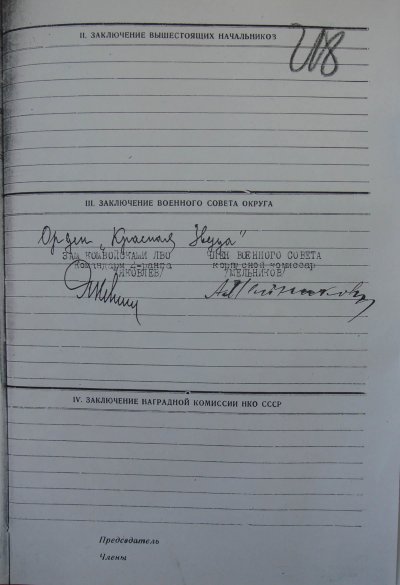 II. ЗАКЛЮЧЕНИЕ ВЫШЕСТОЯЩИХ НАЧАЛЬНИКОЗ
III. ЗАКЛЮЧЕНИЕ ВОЕННОГО СОВЕТА ОКРУГА
Орден „Красная Звезда"
ЗАМ КОМВОЙСКАМИ ЛВО ЧЛЕН ВОЕННОГО СОВЕТА
командарм 2-ранга корпусной комиссар
/ЯКОВЛЕВ/ /МЕЛЬНИКОВ/
IV. ЗАКЛЮЧЕНИЕ НАГРАДНОЙ КОМИССИИ НКО СССР
Председатель
Члены